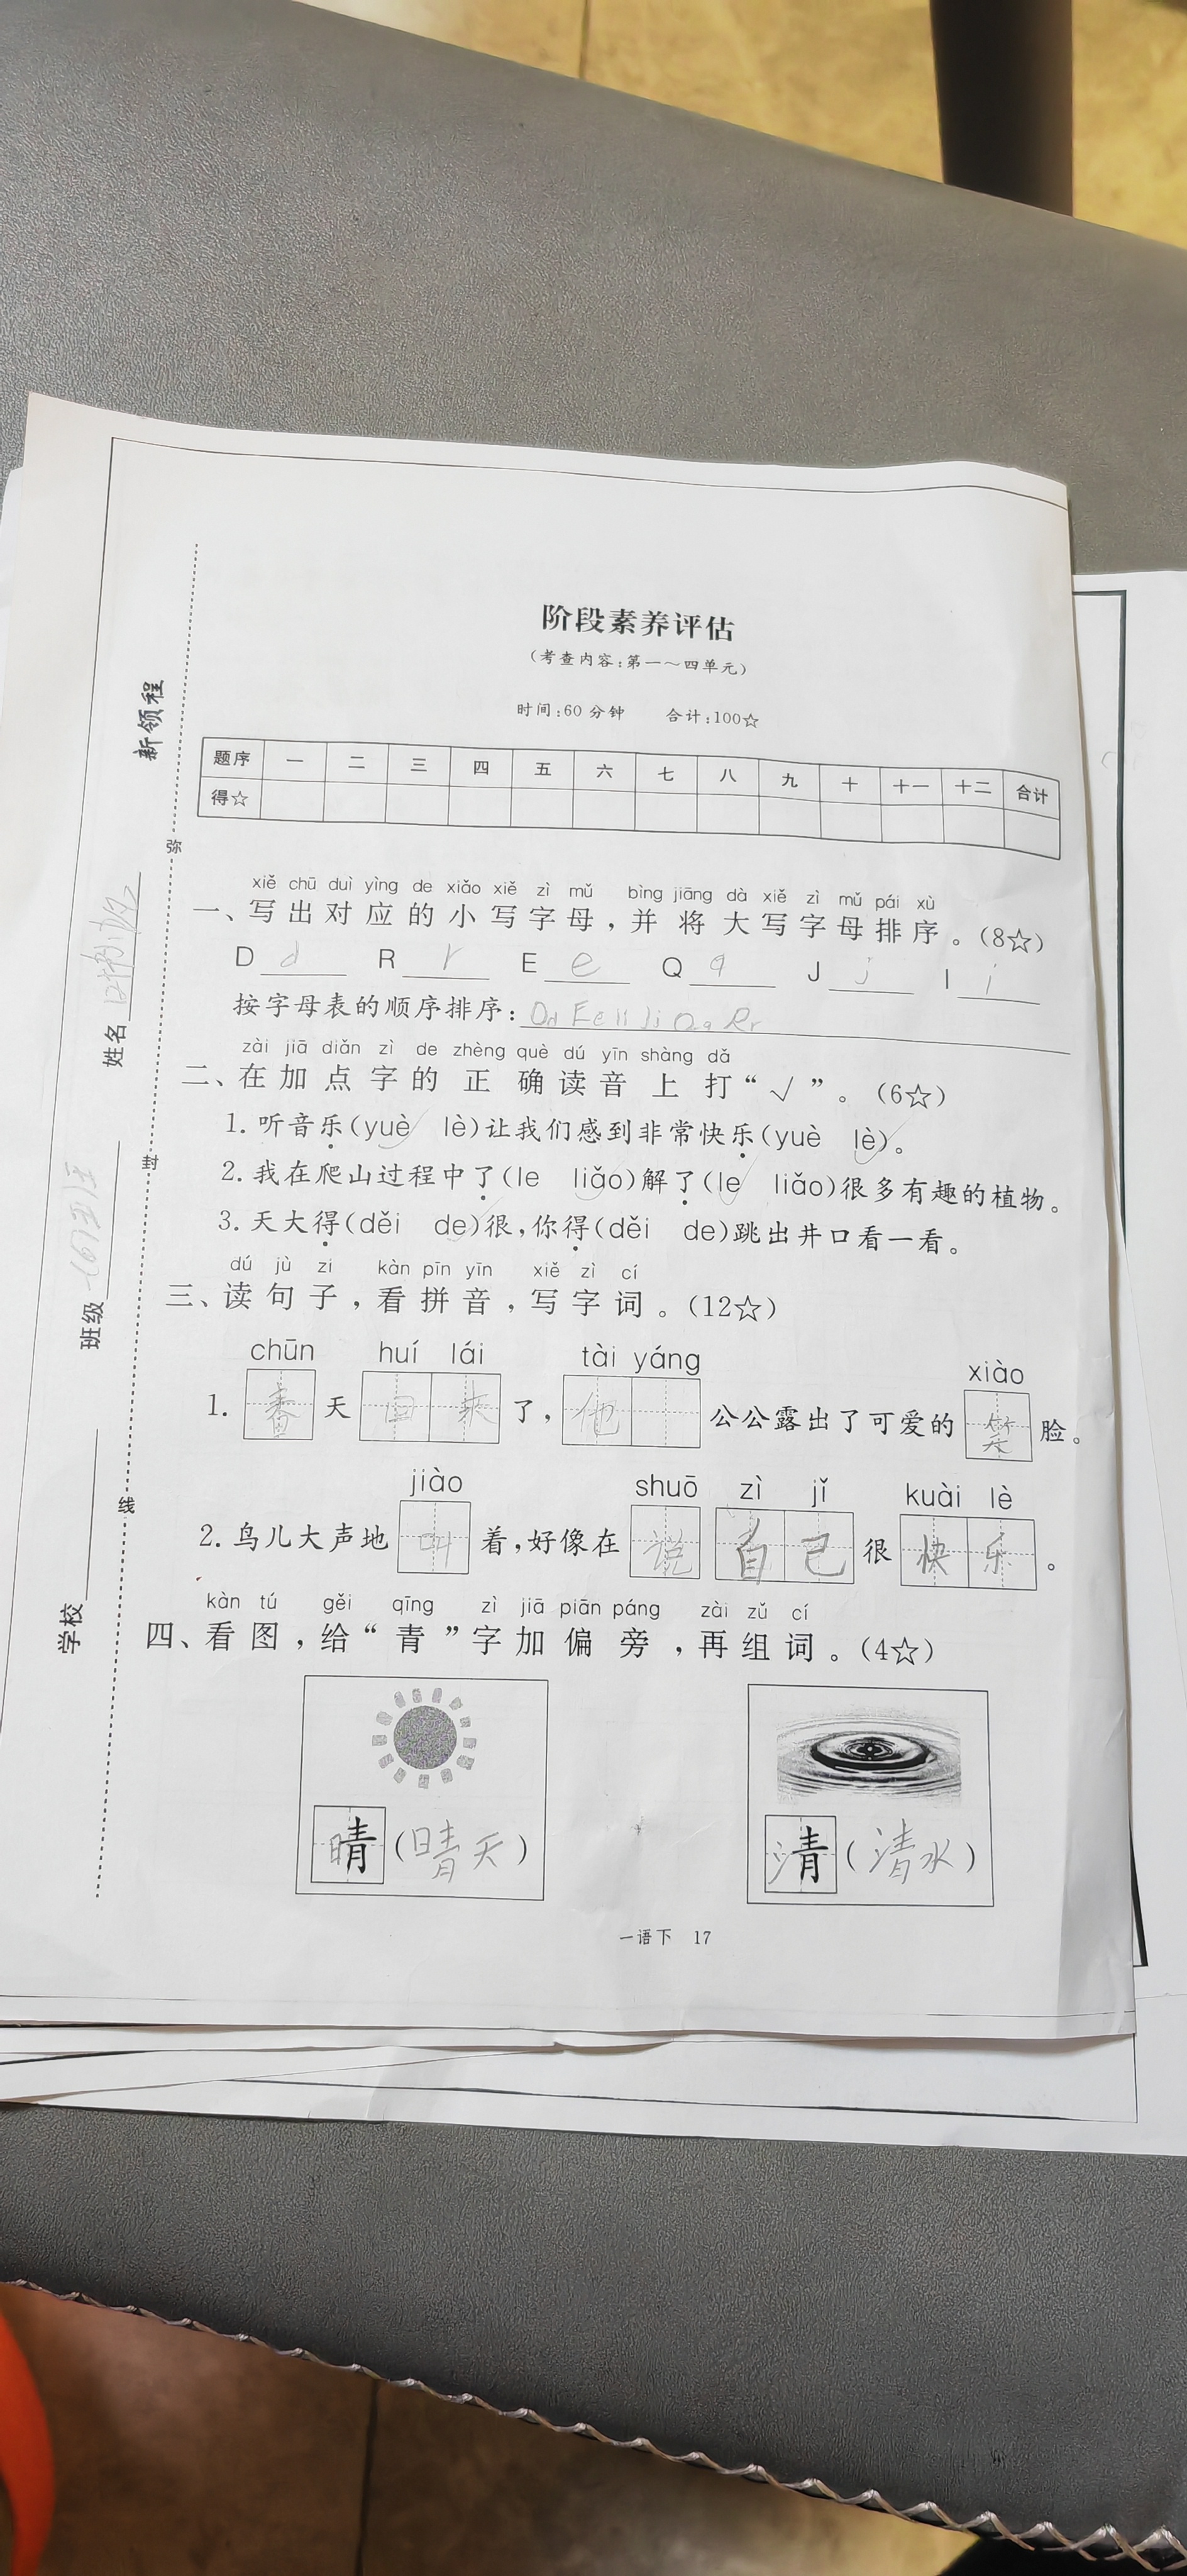 阶段素养评估
(考查内容:第一～四单元)
时间:60分钟 合计:100☆
题序 一 二 三 四 五 六 七 八 九 十 十一 十二 合计
得☆
xiě chū duì yìng de xiǎo xiě zì mǔ bìng jiāng dà xiě zì mǔ pái xù
一、写出对应的小写字母,并将大写字母排序。(8☆)
D d R r E e Q q J j I i
按字母表的顺序排序: Dd Ee Ii Jj Qq Rr
zài jiā diǎn zì de zhèng què dú yīn shàng dǎ
二、在加点字的正确读音上打“√”。(6☆)
1. 听音乐(yuè lè)让我们感到非常快乐(yuè lè)。
2. 我在爬山过程中了(le liǎo)解了(le liǎo)很多有趣的植物。
3. 天大得(děi de)很,你得(děi de)跳出井口看一看。
dú jù zi kàn pīn yīn xiě zì cí
三、读句子,看拼音,写字词。(12☆)
chūn huí lái tài yáng xiào
1. 天 回 了, 他 公公露出了可爱的 脸。
jiào shuō zì jǐ kuài lè
2. 鸟儿大声地 叫 着,好像在 说 自己 很 快乐 。
kàn tú gěi qīng zì jiā piān páng zài zǔ cí
四、看图,给“青”字加偏旁,再组词。(4☆)
晴(晴天) 清(清水)
一语下 17
新领程
弥
封
线
姓名
班级 一(6)班
学校